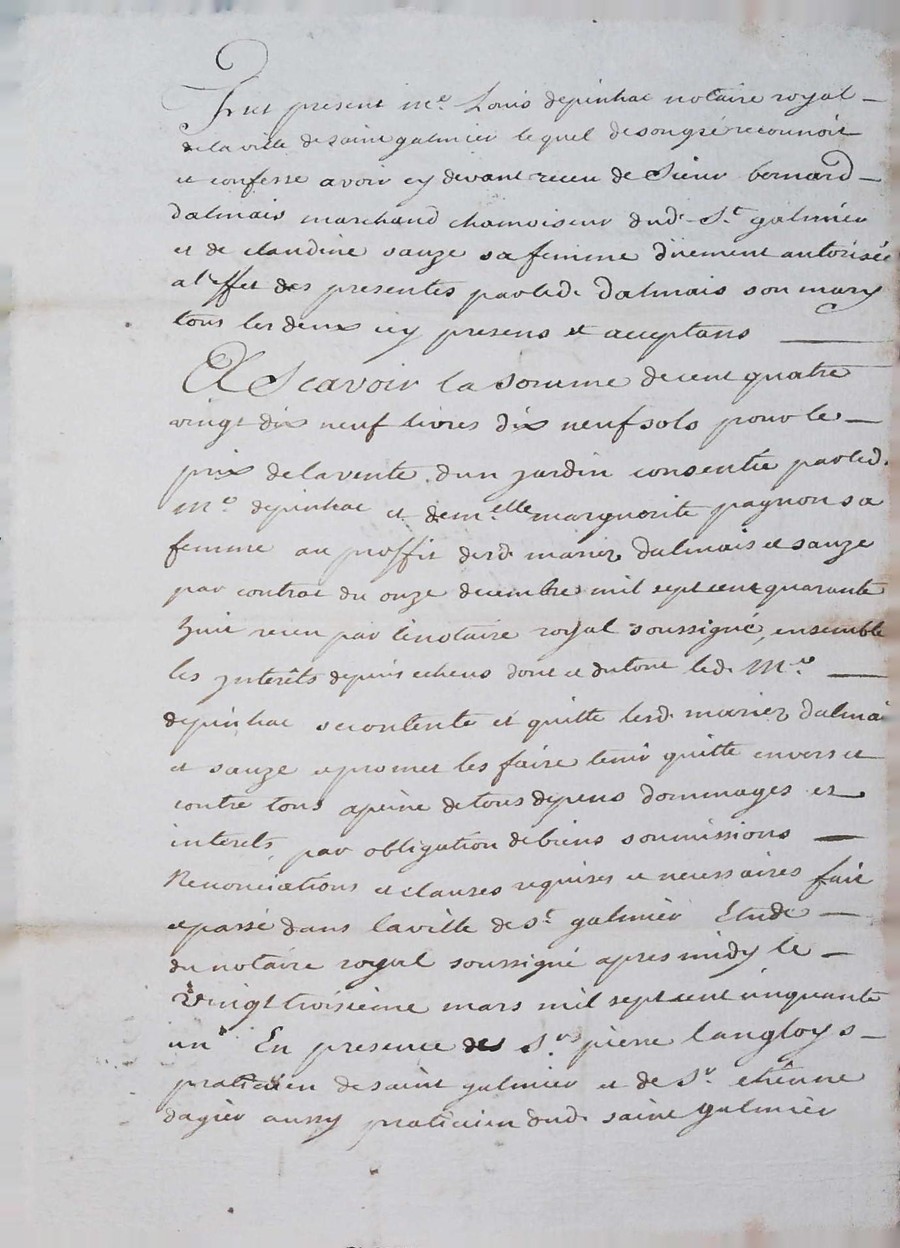 Fut present me. Louis depinhac notaire royal –
de la ville de saint galmier lequel de son gré reconnoit
et confesse avoir cy devant receu de Sieur bernard –
dalmais marchand chamoiseur dud. St. galmier
et de claudine sauze sa femme dûement autorisée
a l'effet des presentes par led. dalmais son mary
tous les deux icy presens et acceptans —
Et Scavoir la somme de cent quatre
vingt dix neuf livres dix neuf sols pour le –
prix de la vente d'un jardin consentie par led.
Me depinhac et dem.elle marguerite pagnon sa
femme au proffit desd. mariez dalmais et sauze
par contrat du onze decembre mil sept cent quarante
huit receu par le notaire royal soussigné, ensemble
les jnterêts depuis echeus dont et du tout led. Me. —
depinhac se contente et quitte lesd. mariez dalmai
et sauze et promet les faire tenir quitte envers et
contre tous a peine de tous depens dommages et
interets, par obligation de biens soumissions —
Renonciations et clauses requises et necessaires fait
et passé dans la ville de st. galmier Etude –
du notaire royal soussigné apres midy le –
vingt troisieme mars mil sept cent cinquante
un. En presence de Srs. pierre langloys –
praticien de saint galmier et de Sr. etiênne
dagier aussy praticien dud. saint galmier